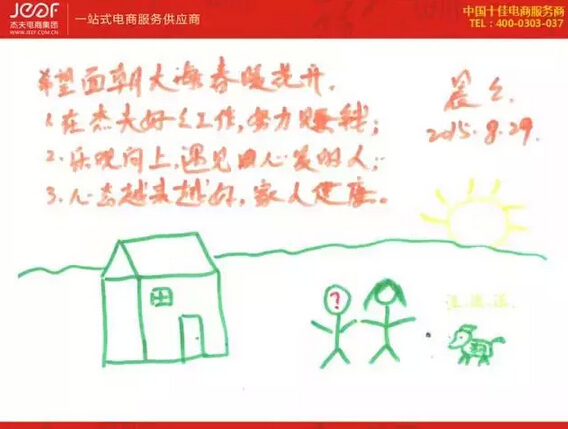 JEOF 杰夫电商集团 WWW.JEOF.COM.CN 一站式电商服务供应商
中国十佳电商服务商
TEL：400-0303-037
希望面朝大海春暖花开.
1.在杰夫好好工作,努力赚钱;
2.乐观向上,遇见 心爱的人;
3.心态越来越好,家人健康。
2015.8.29.
?
汪.汪.汪.